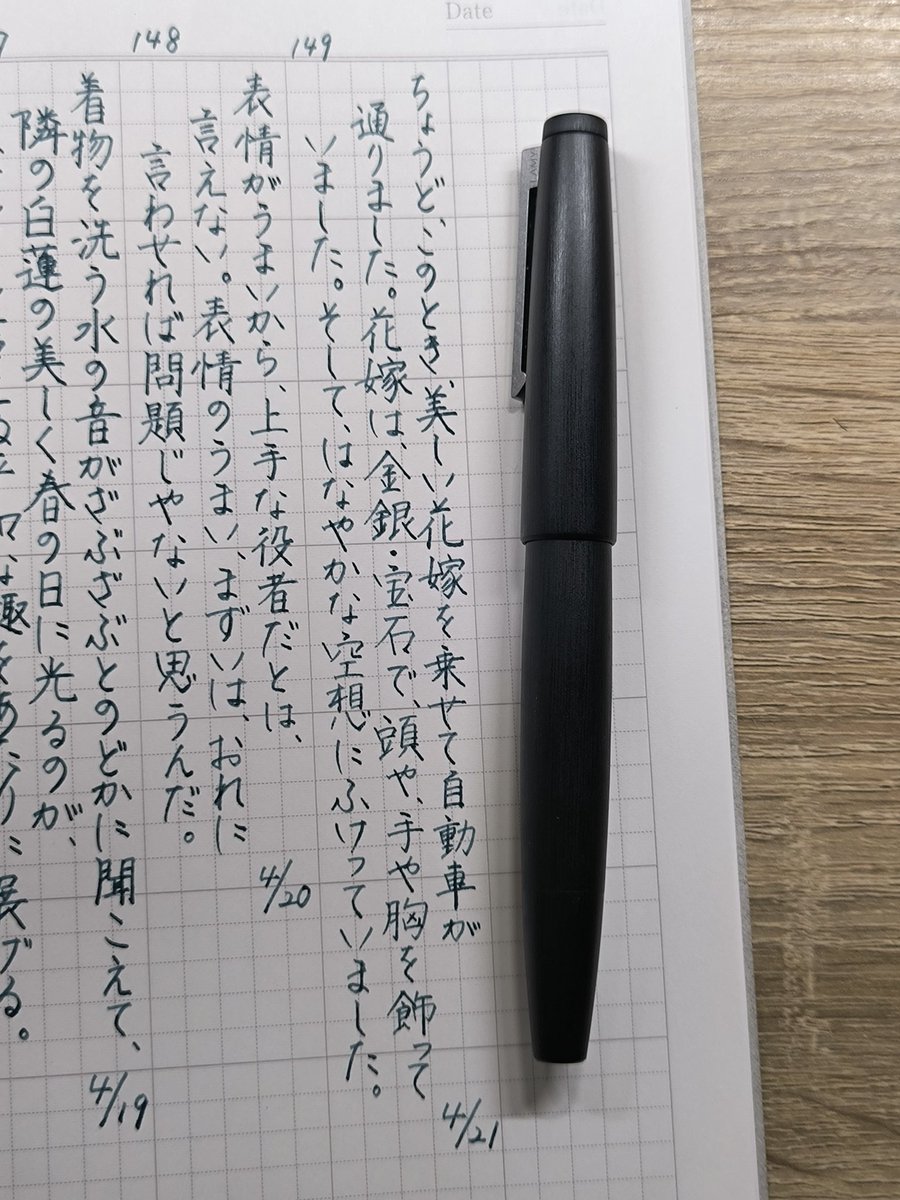 Date
ちょうど、このとき、美しい花嫁を乗せて自動車が
通りました。花嫁は、金銀・宝石で、頭や、手や胸を飾って
いました。そして、はなやかな空想にふけっていました。
4/21
149
表情がうまいから、上手な役者だとは、
言えない。表情のうまい、まずいは、おれに
言わせれば問題じゃないと思うんだ。
4/20
148
着物を洗う水の音がざぶざぶとのどかに聞こえて、
隣の白蓮の美しく春の日に光るのが、
趣をあたりに展げる。
4/19
LAMY